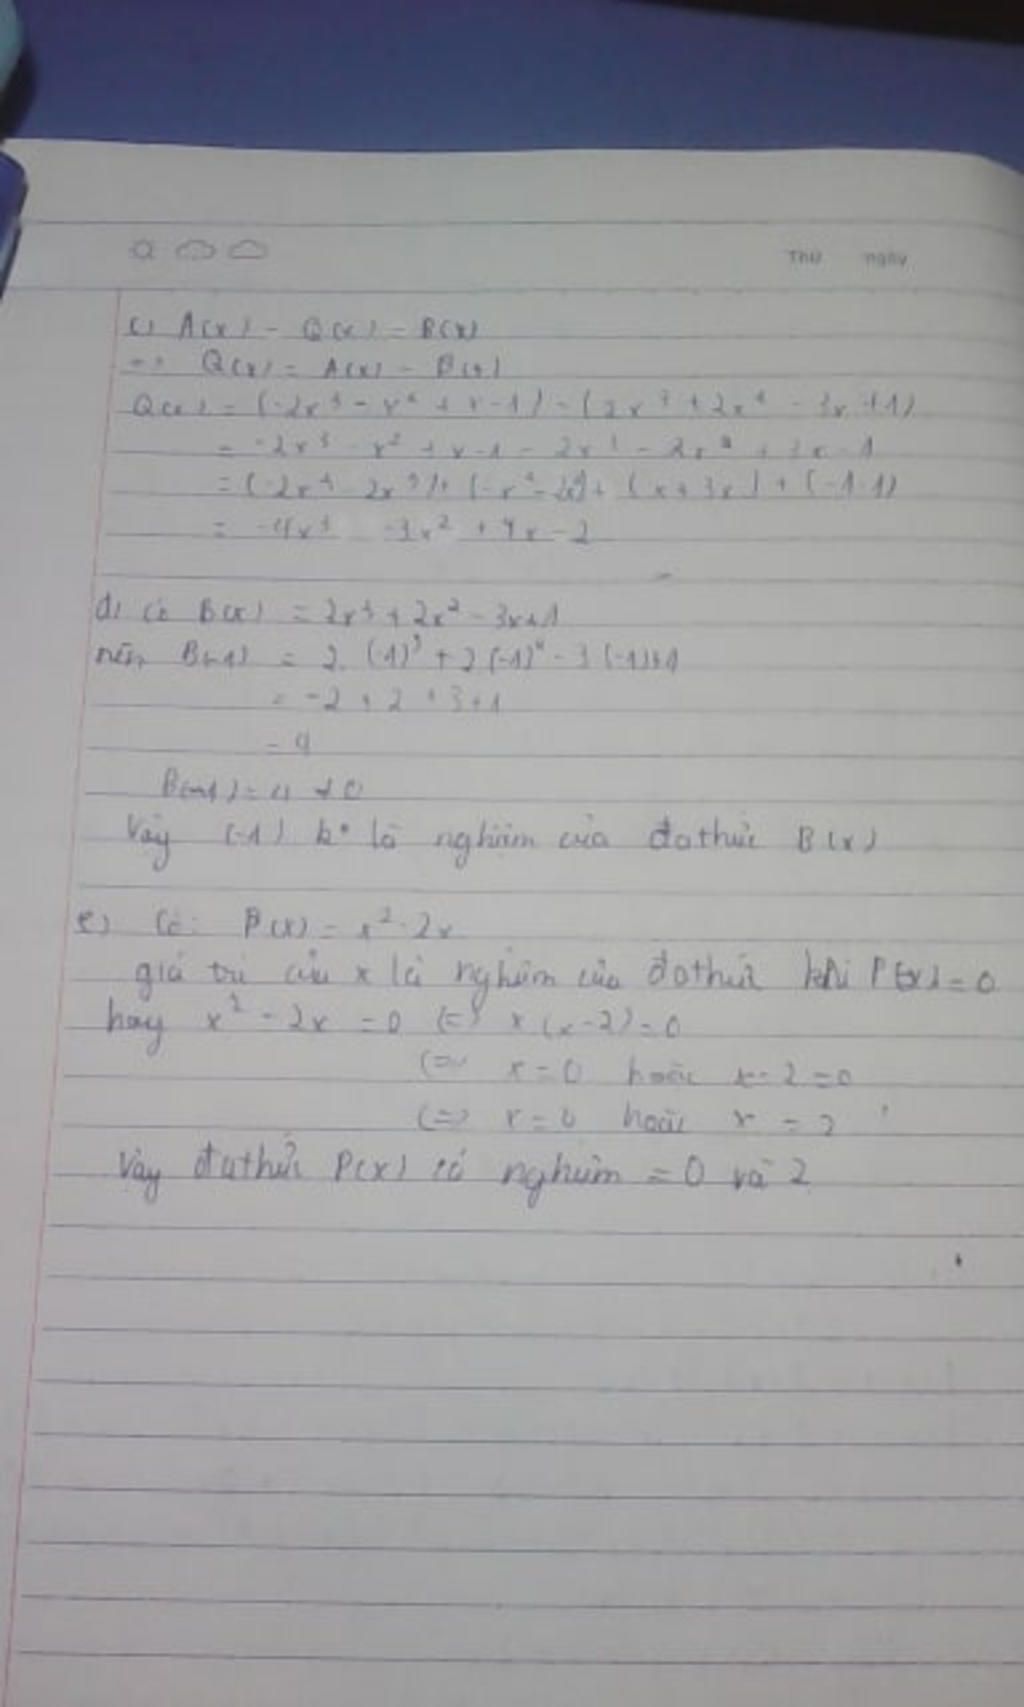 Thứ ngày
c) A(x) - Q(x) = B(x)
=> Q(x) = A(x) - B(x)
Q(x) = (-2x³ - x² + x - 1) - (2x³ + 2x² - 3x + 1)
= -2x³ - x² + x - 1 - 2x³ - 2x² + 3x - 1
= (-2x³ - 2x³) + (-x² - 2x²) + (x + 3x) + (-1-1)
= -4x³ - 3x² + 4x - 2
d) Có B(x) = 2x³ + 2x² - 3x + 1
nên B(-1) = 2. (-1)³ + 2(-1)² - 3(-1)+1
= -2 + 2 + 3 + 1
= 4
B(-1) = 4 ≠ 0
Vậy (-1) k° là nghiệm của đa thức B(x)
e) Có: P(x) = x² - 2x
giá trị của x là nghiệm của đa thức khi P(x) = 0
hay x² - 2x = 0 (=) x(x-2) = 0
(=> x = 0 hoặc x - 2 = 0
(=> x = 0 hoặc x = 2
Vậy đa thức P(x) có nghiệm = 0 và 2